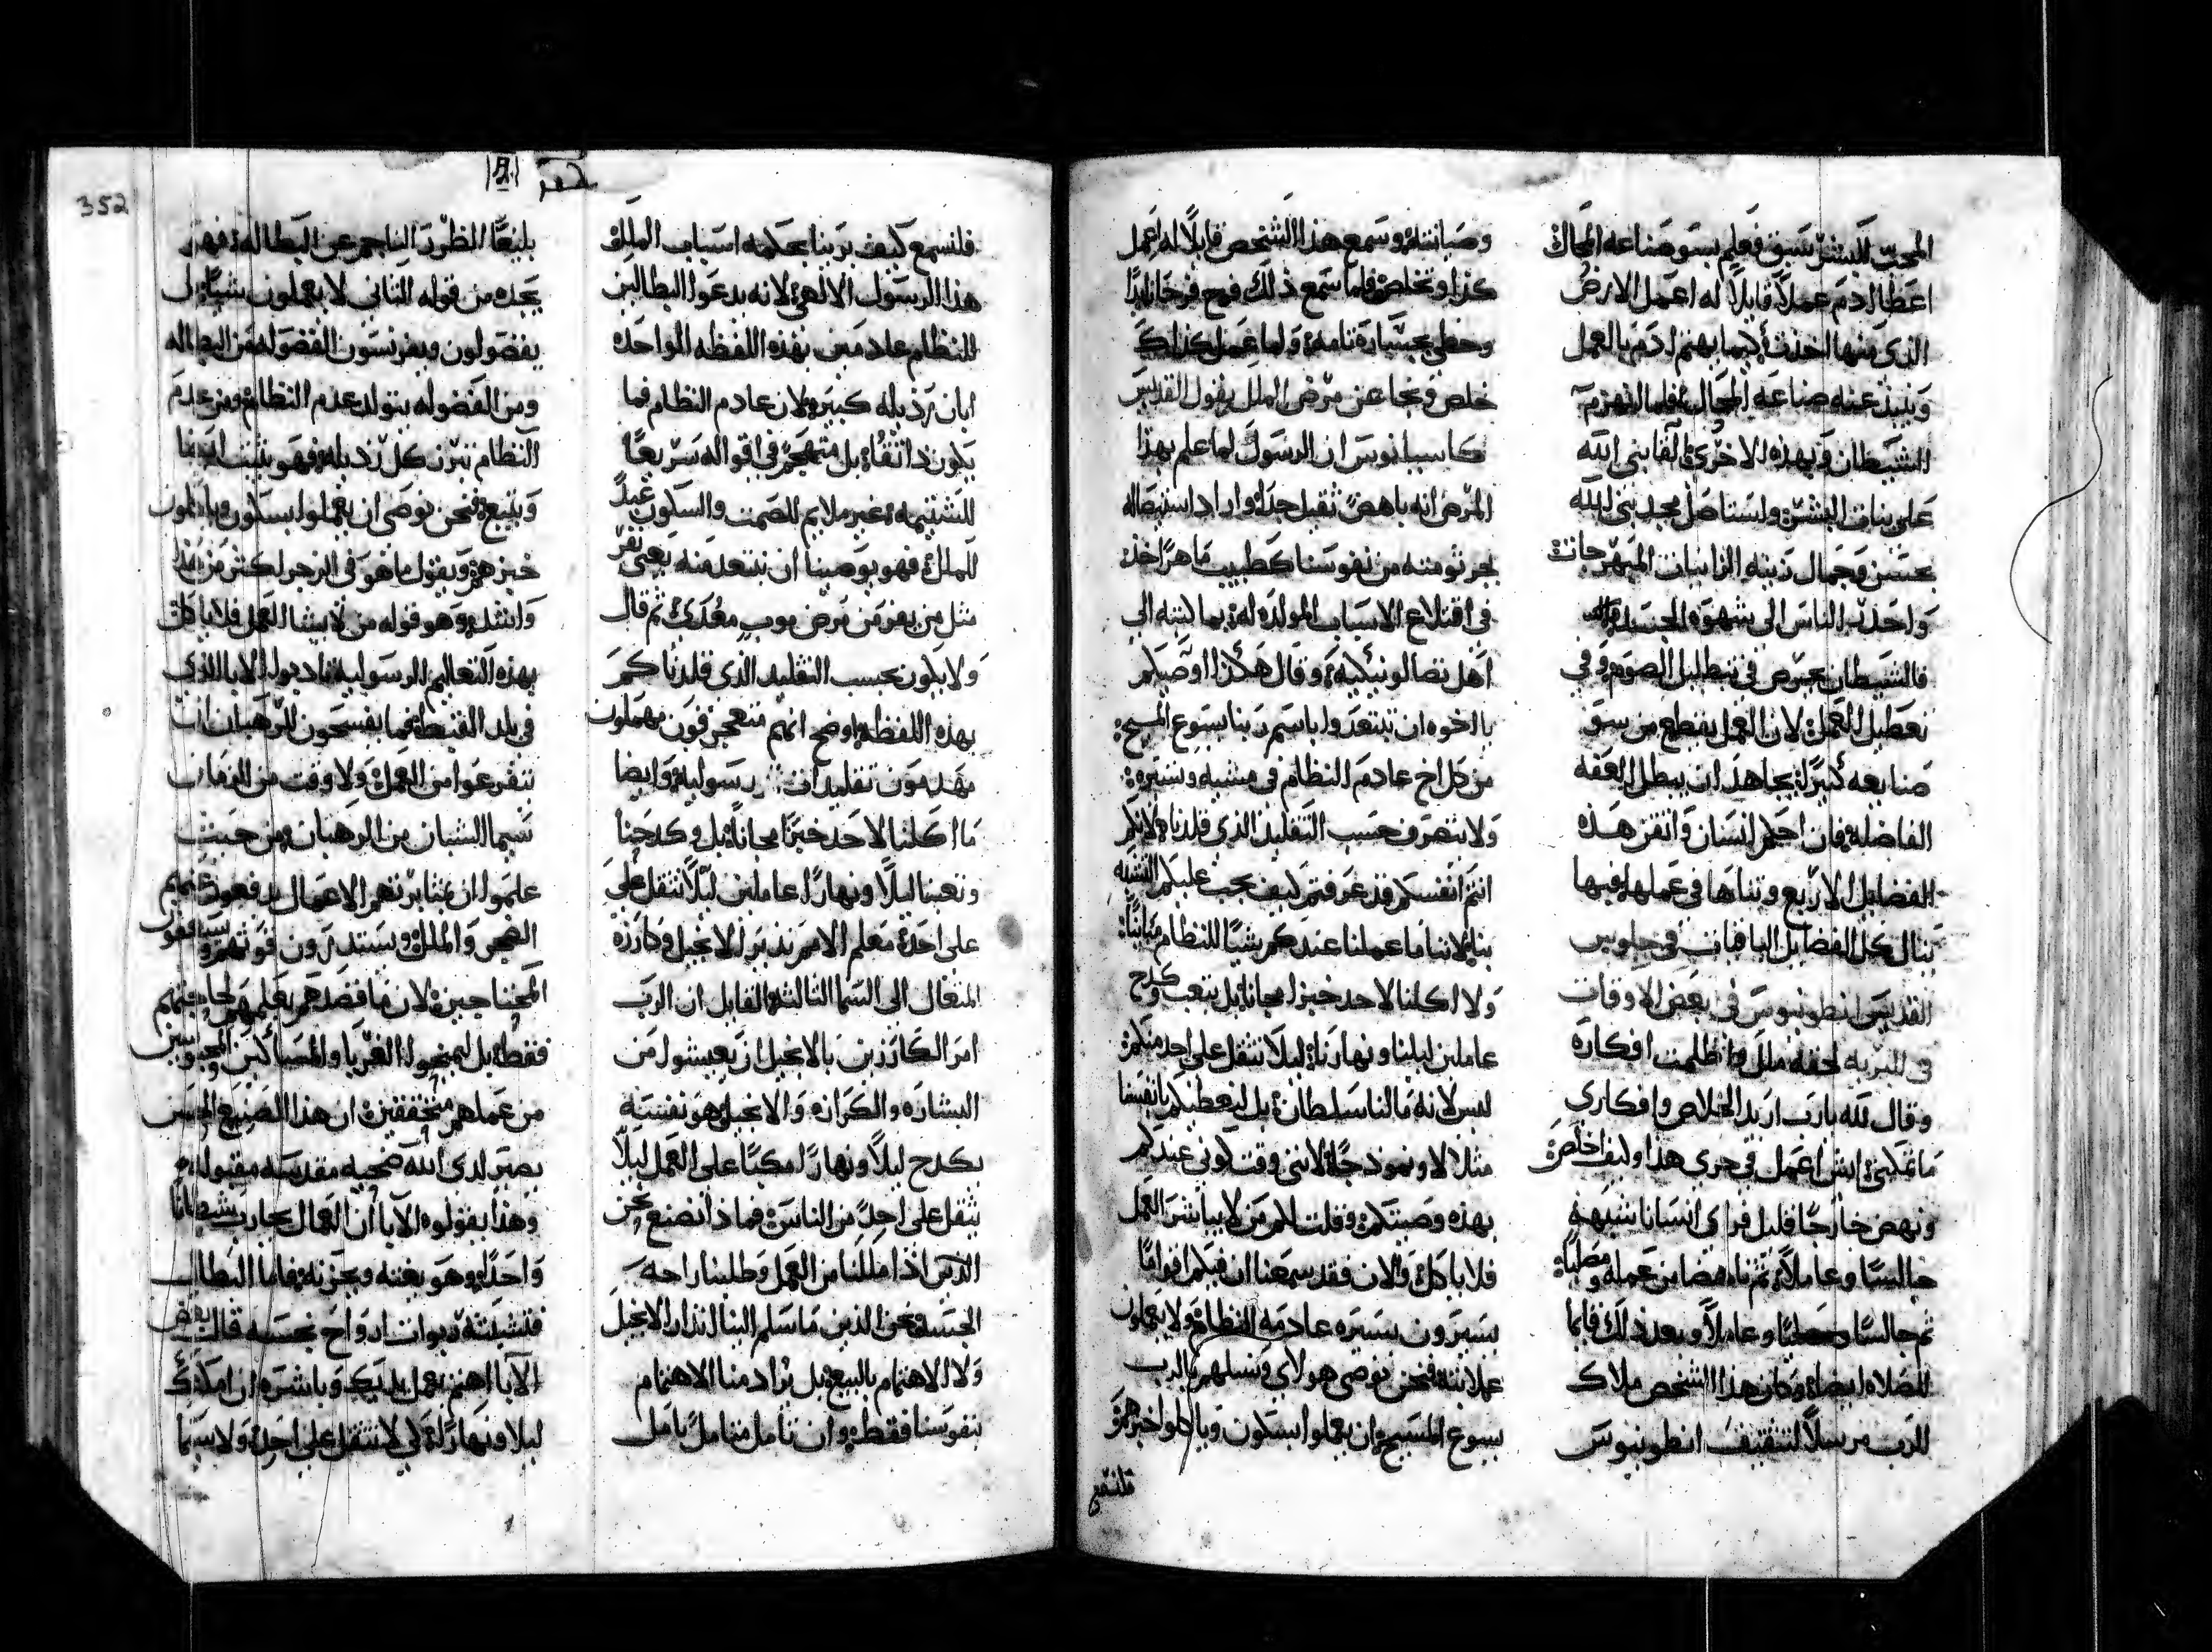 المحب للبشر نسق فعلم بسو صناعة المحال
اعطا ادم عملاً قايلاً له اعمل الارض
الذي منها اخذت كيما يهتم ادم بالعمل
وينبذ عنه صناعة المحال فلما انهزم
الشيطان بهذه الاخرى القا بني الله
على بنات البشر واستاصل مجد بني الله
بحسن وجمال زينة الزانيات المبهرجات
واحدر الناس الى شهوة الجسد
فالشيطان يحرص في تبطيل الصوم وفي
تعطيل العمل لان العمل يقطع من سو
صنايعه كثيراً يجاهد ان يبطل العفه
الفاضله فان احكم انسان واتقن هذه
الفضايل الاربع وتناها في عملها فيها
ينال كل الفضايل الباقيات في جلوس
القديس انطونيوس في بعض الاوقات
في البريه لحقه ملل واظلمت افكاره
وقال لله يارب اريد الخلاص وافكاري
ما تمكني ايش اعمل في حزني هذا وكيف اخلص
ونهض خارجاً قليل فراى انساناً شبهه
جالساً وعاملاً ثم ناهضاً من عمله ومصلياً
ثم جالساً وعاملاً وبعد ذلك قايماً
للصلاه ايضاً وكان هذا الشخص ملاك
الرب مرسلاً لتثقيف انطونيوس
وصيانته وسمع هذا الشخص قايلاً له اعمل
كذا وتخلص فلما سمع ذلك فرح فرحاً زايداً
وحظي بجسارة تامه ولما عمل كذلك
خلص ونجا عن مرض الملل يقول القديس
كاسيانوس ان الرسول لما علم بهذا
المرض انه باهض ثقيل جداً واراد استيصاله
بجرثومته من نفوسنا كطبيب ماهر اخذ
في اقتلاع الاسباب المولده له بما كتبه الى
اهل تصالونيكيه وقال هكذا اوصيكم
يا اخوه ان تبتعدوا باسم ربنا يسوع المسيح
من كل اخ عادم النظام في مشيه وسيره
ولا يتصرف حسب التقليد الذي قلدناه لانكم
انتم انفسكم قد عرفتم كيف يجب عليكم التشبه
بنا لاننا ما عملنا عندكم شيا للنظام مبايناً
ولا اكلنا لاحد خبزاً مجاناً بل بتعب وكدح
عاملين ليلنا ونهارنا ليلا نثقل على احد منكم
ليس لانه ما لنا سلطان بل لنعطيكم بانفسنا
مثلا لا ونموذجاً لانني وقت كوني عندكم
بهذه وصيتكم وقلت لكم من لا يباشر العمل
فلا ياكل والان فقد سمعنا ان فيكم اقواماً
يسيرون سيره عادمه النظام ولا يعملون
عملا بته فنحن نوصي هولاي ونسلهم بالرب
يسوع المسيح ان يعملوا بسكون وياكلوا خبزهم
فلنسمع
فلنسمع كيف يرينا بحكمه اسباب الملل
هذا الرسول الالهي لانه يدعوا البطالين
للنظام عادمين بهذه اللفظه الواحده
ابان رذيله كبيره لان عادم النظام فما
يكون ذا تقاة بل متهجم في اقواله سريعاً
للشتيمه غير ملايم للصمت والسكون عبداً
للملل فهو يوصينا ان نبتعد منه يعني نفر
مثل من يفر من مرض موب معدي ثم قال
ولا يكون بحسب التقليد الذي قلدناكم
بهذه اللفظه اوضح انهم متعجرفون مهملون
مهدمون تقليدات رسوليه وايضا
ما اكلنا لاحد خبزاً مجاناً بل وكدحنا
وتعبنا ليلاً ونهاراً عاملين ليلا نثقل على
على احد معلم الامم نذير الانجيل وكارزه
المتعال الى السما الثالثه القايل ان الرب
امر الكارزين بالانجيل ان يعيشوا من
البشاره والكرازه والانجيل هو نفسه
يكدح ليلاً ونهاراً مكباً على العمل ليلا
يثقل على احد من الناس فماذا نصنع نحن
الذين اذا مللنا من العمل وطلبنا راحه
الجسد نحن الذين ما سلم الينا انذار الانجيل
ولا الاهتمام بالبيع بل يراد منا الاهتمام
بنفوسنا فقط وان تامل متامل يامل
352
بليغاً الضرر الناجم عن البطاله فهو
يجده من قوله الثاني لا يعملون شياً بل
يفضولون ويمرنسون الفضوله من البطاله
ومن الفضوله يتولد عدم النظام ومن عدم
النظام تبرز كل رذيله فهو يثبت ايضا
ويتبع فنحن نوصي ان يعملوا بسكون وياكلون
خبزهم ويقول ما هو في الزجر اكثر من هذا
واشد وهو قوله من لا يشا العمل فلا ياكل
بهذه التعاليم الرسوليه تادبوا الابا الذي
في بلد القبط فما يفسحون للرهبان ان
يتفرغوا من العمل ولا وقت من الزمان
سيما الشبان من الرهبان من حيث
علموا ان بمثابرتهم الاعمال يدفعون عنهم
الضجر والملل ويستدرون قوتهم ويسافقون
المحتاجين لان ما قصدهم بعملهم لحاجتهم
فقط بل ليمنحوا الغربا والمساكين المحبوسين
من عملهم متحققين ان هذا الصنيع الحسن
يصير لدى الله ضحيه مقدسه مقبوله
وهذا يقولوه الابا ان العمال يحارب شيطانا
واحداً وهو يغمه ويحزنه فاما البطال
فتشتته ربوات ارواح نجسه قال بعض
الابا اهتم بعمل يديك وباشره ان امكنك
ليلا ونهاراً لكي لا تثقل على احد ولا سيما